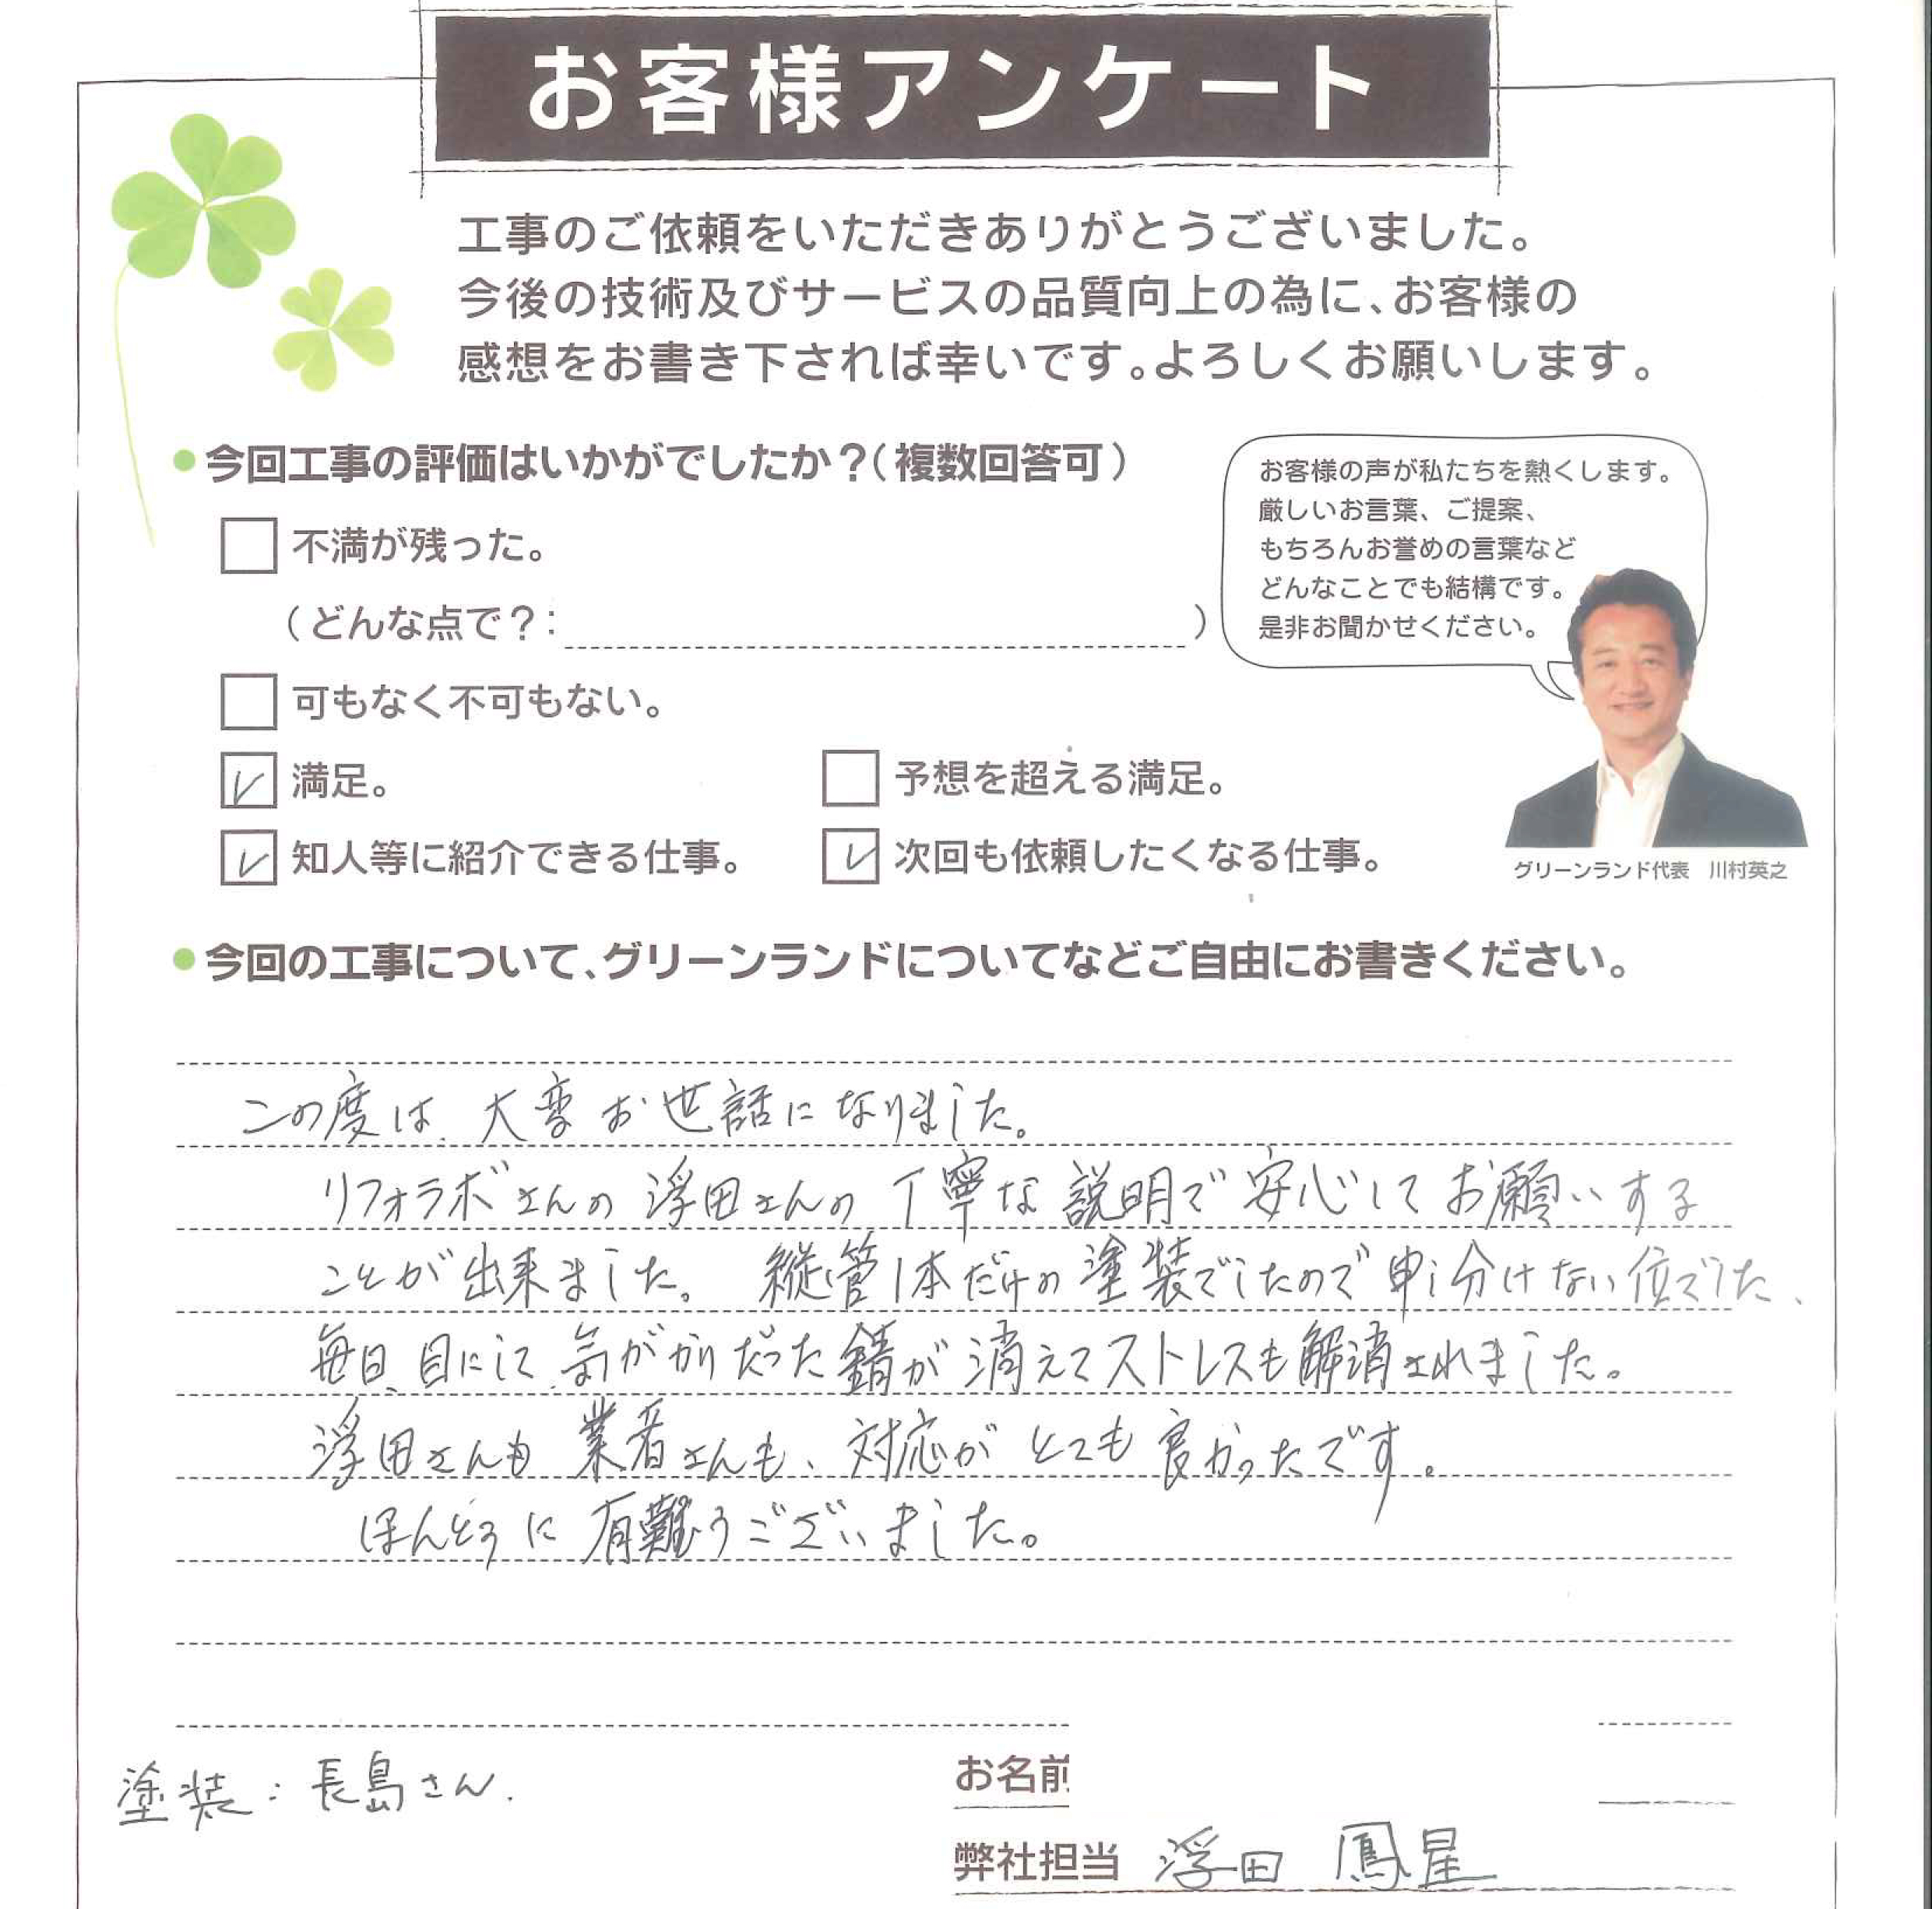 お客様アンケート
工事のご依頼をいただきありがとうございました。
今後の技術及びサービスの品質向上の為に、お客様の
感想をお書き下されば幸いです。よろしくお願いします。
●今回工事の評価はいかがでしたか？（複数回答可）
不満が残った。
（どんな点で？：　　　）
可もなく不可もない。
満足。
予想を超える満足。
知人等に紹介できる仕事。
次回も依頼したくなる仕事。
お客様の声が私たちを熱くします。
厳しいお言葉、ご提案、
もちろんお誉めの言葉など
どんなことでも結構です。
是非お聞かせください。
グリーンランド代表　川村英之
●今回の工事について、グリーンランドについてなどご自由にお書きください。
この度は、大変お世話になりました。
リフォラボさんの浮田さんの丁寧な説明で安心してお願いする
ことが出来ました。縦管1本だけの塗装でしたので申し分けない位でした、
毎日、目にして、気がかりだった錆が消えてストレスも解消されました。
浮田さんも業者さんも、対応がとても良かったです。
ほんとうに有難うございました。
塗装：長島さん.
お名前
弊社担当　浮田　鳳星